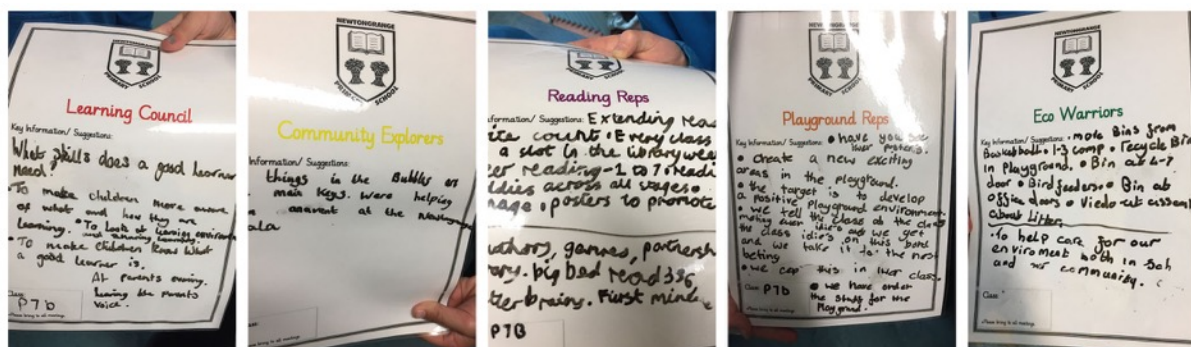 NEWTONGRANGE
PRIMARY SCHOOL
Learning Council
Key Information/ Suggestions:
What skills does a good learner
need?
• To make children more aware
of what and how they are
learning. • To look at learning enviroment
and learning.
• To make children know what
a good learner is.
At parents evening.
hearing the parents
voice.
Class
P7b
Please bring to all meetings
NEWTONGRANGE
PRIMARY SCHOOL
Community Explorers
Information/ Suggestions:
things in the Bubbles or
main keys. were helping
at the
ala
PRIMARY SCHOOL
Reading Reps
Information/ Suggestions: Extending
count • Every class
a slot in the library
reading - 1 to 7 •
across all stages •
• posters to promote
games,
big bed read 396
brainy. First
P7B
NEWTONGRANGE
PRIMARY SCHOOL
Playground Reps
Key Information/ Suggestions: • have you see
posters.
• create a new exciting
areas in the playground.
• the target is to develop
a positive playground environment.
• we tell the class at the class
the class idie's on this bord
and we take it to the next
beting
• we this in class.
Class P7b
• we have order
the stuff for the
playground.
Please bring to all meetings
NEWTONGRANGE
PRIMARY SCHOOL
Eco Warriors
Key Information/ Suggestions: • more Bins from
Basketball • 1-3 comp • recycle Bin
in Playground. • Bin at 4-7
door • Bird feeders • Bin at
office doors • at
about litter.
• To help care for our
enviroment both in sch
and community.
Class
Please bring to all meetings